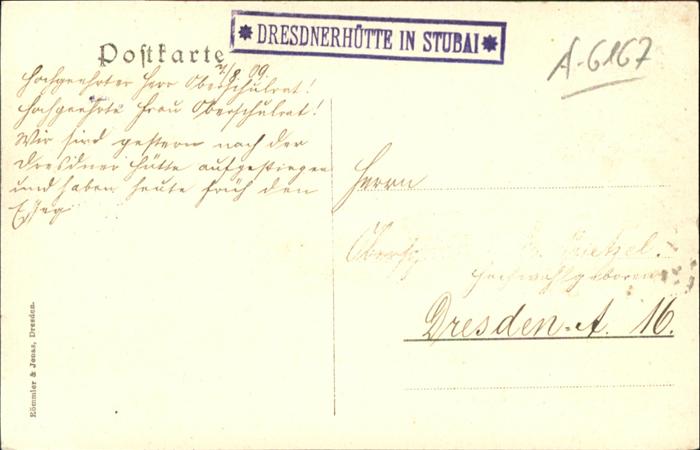 * DRESDNERHÜTTE IN STUBAI *
A-6167
Postkarte
7/8 09
Hochgeehrter Herr Oberschulrat!
Hochgeehrte Frau Oberschulrat!
Wir sind gestern nach der
Dresdner Hütte aufgestiegen
und haben heute früh den
Herrn
hochwohlgeboren
Dresden-A. 16.
Römmler & Jonas, Dresden.